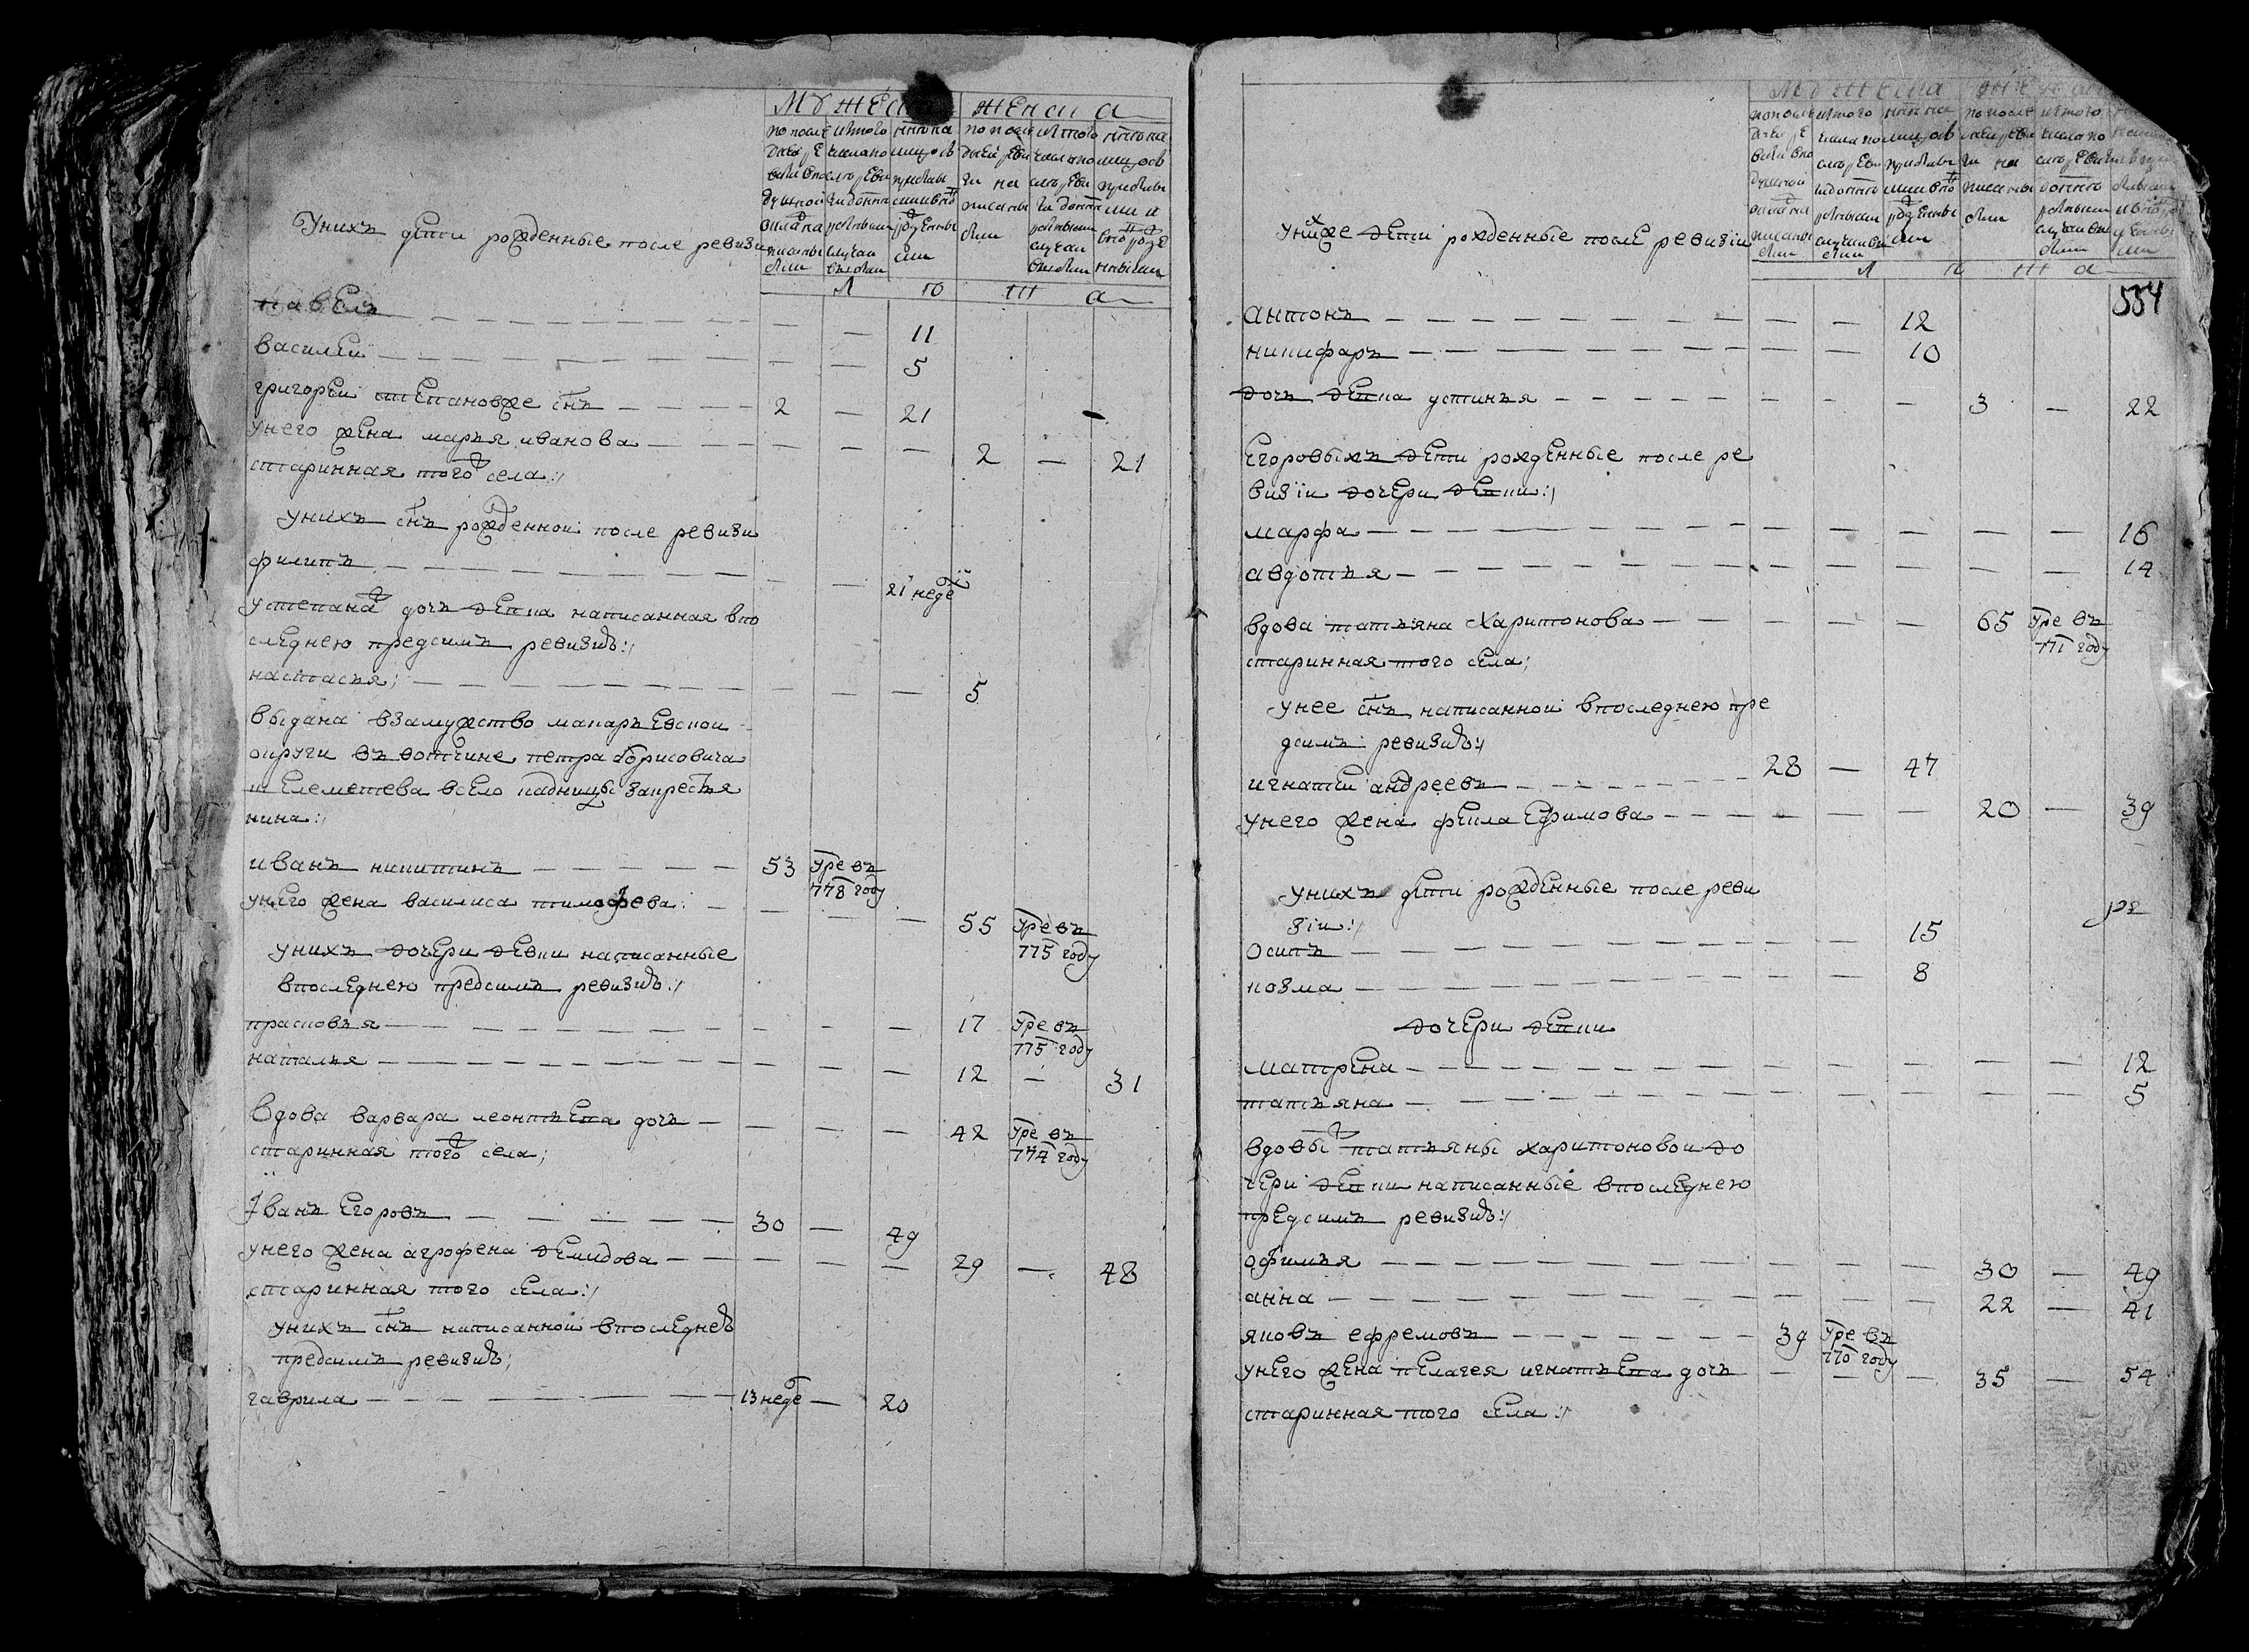 Мужеска женска
унихъ дети рожденные после ревизи
лѣта
павелъ 11
василеи 5
григореи степановже снъ 2 — 21
унего жена марья иванова 2 — 21
старинная того села
унихъ снъ рожденнои после ревизи
филипъ 21 неде
устепана дочь девка написанная впо
следнею предсимъ ревизиѣ
настасья 5
выдана взамужство макарьевскои
округи въ вотчине петра борисовича
шелеметева всело кадницы закрестья
нина
иванъ никитинъ 53 умре въ
778 году
унего жена василиса тимофева 55 умре въ
775 году
унихъ дочери девки написанные
впоследнею предсимъ ревизиѣ
прасковья 17 умре въ
775 году
наталья 12 — 31
вдова варвара леонтьева дочь 42 умре въ
774 году
старинная того села
Iванъ егоровъ 30 — 49
унего жена агрофена демидова 29 — 48
старинная того села
унихъ снъ написаннои впоследнеѣ
предсимъ ревизиѣ
гаврила 13 неде — 20
Мужеска
унихже дети рожденные после ревизiи
554
антонъ 12
никифаръ 10
дочь девка устинья 3 — 22
егоровыхъ дети рожденные после ре
визiи дочери девки
марфа 16
авдотья 14
вдова татьяна харитонова 65 умре въ
771 году
старинная того села
унее снъ написаннои впоследнею пре
дсимъ ревизиѣ
игнатеи андреевъ 28 — 47
унего жена фекла ефимова 20 — 39
унихъ дети рожденные после реви
зiи
осипъ 15
козма 8
дочери девки
матрена 12
татьяна 5
вдовы татьяны харитоновои до
чери девки написанные впоследнею
предсимъ ревизиѣ
офимья 30 — 49
анна 22 — 41
яковъ ефремовъ 39 умре въ
770 году
унего жена пелагея игнатьева дочь 35 — 54
старинная того села